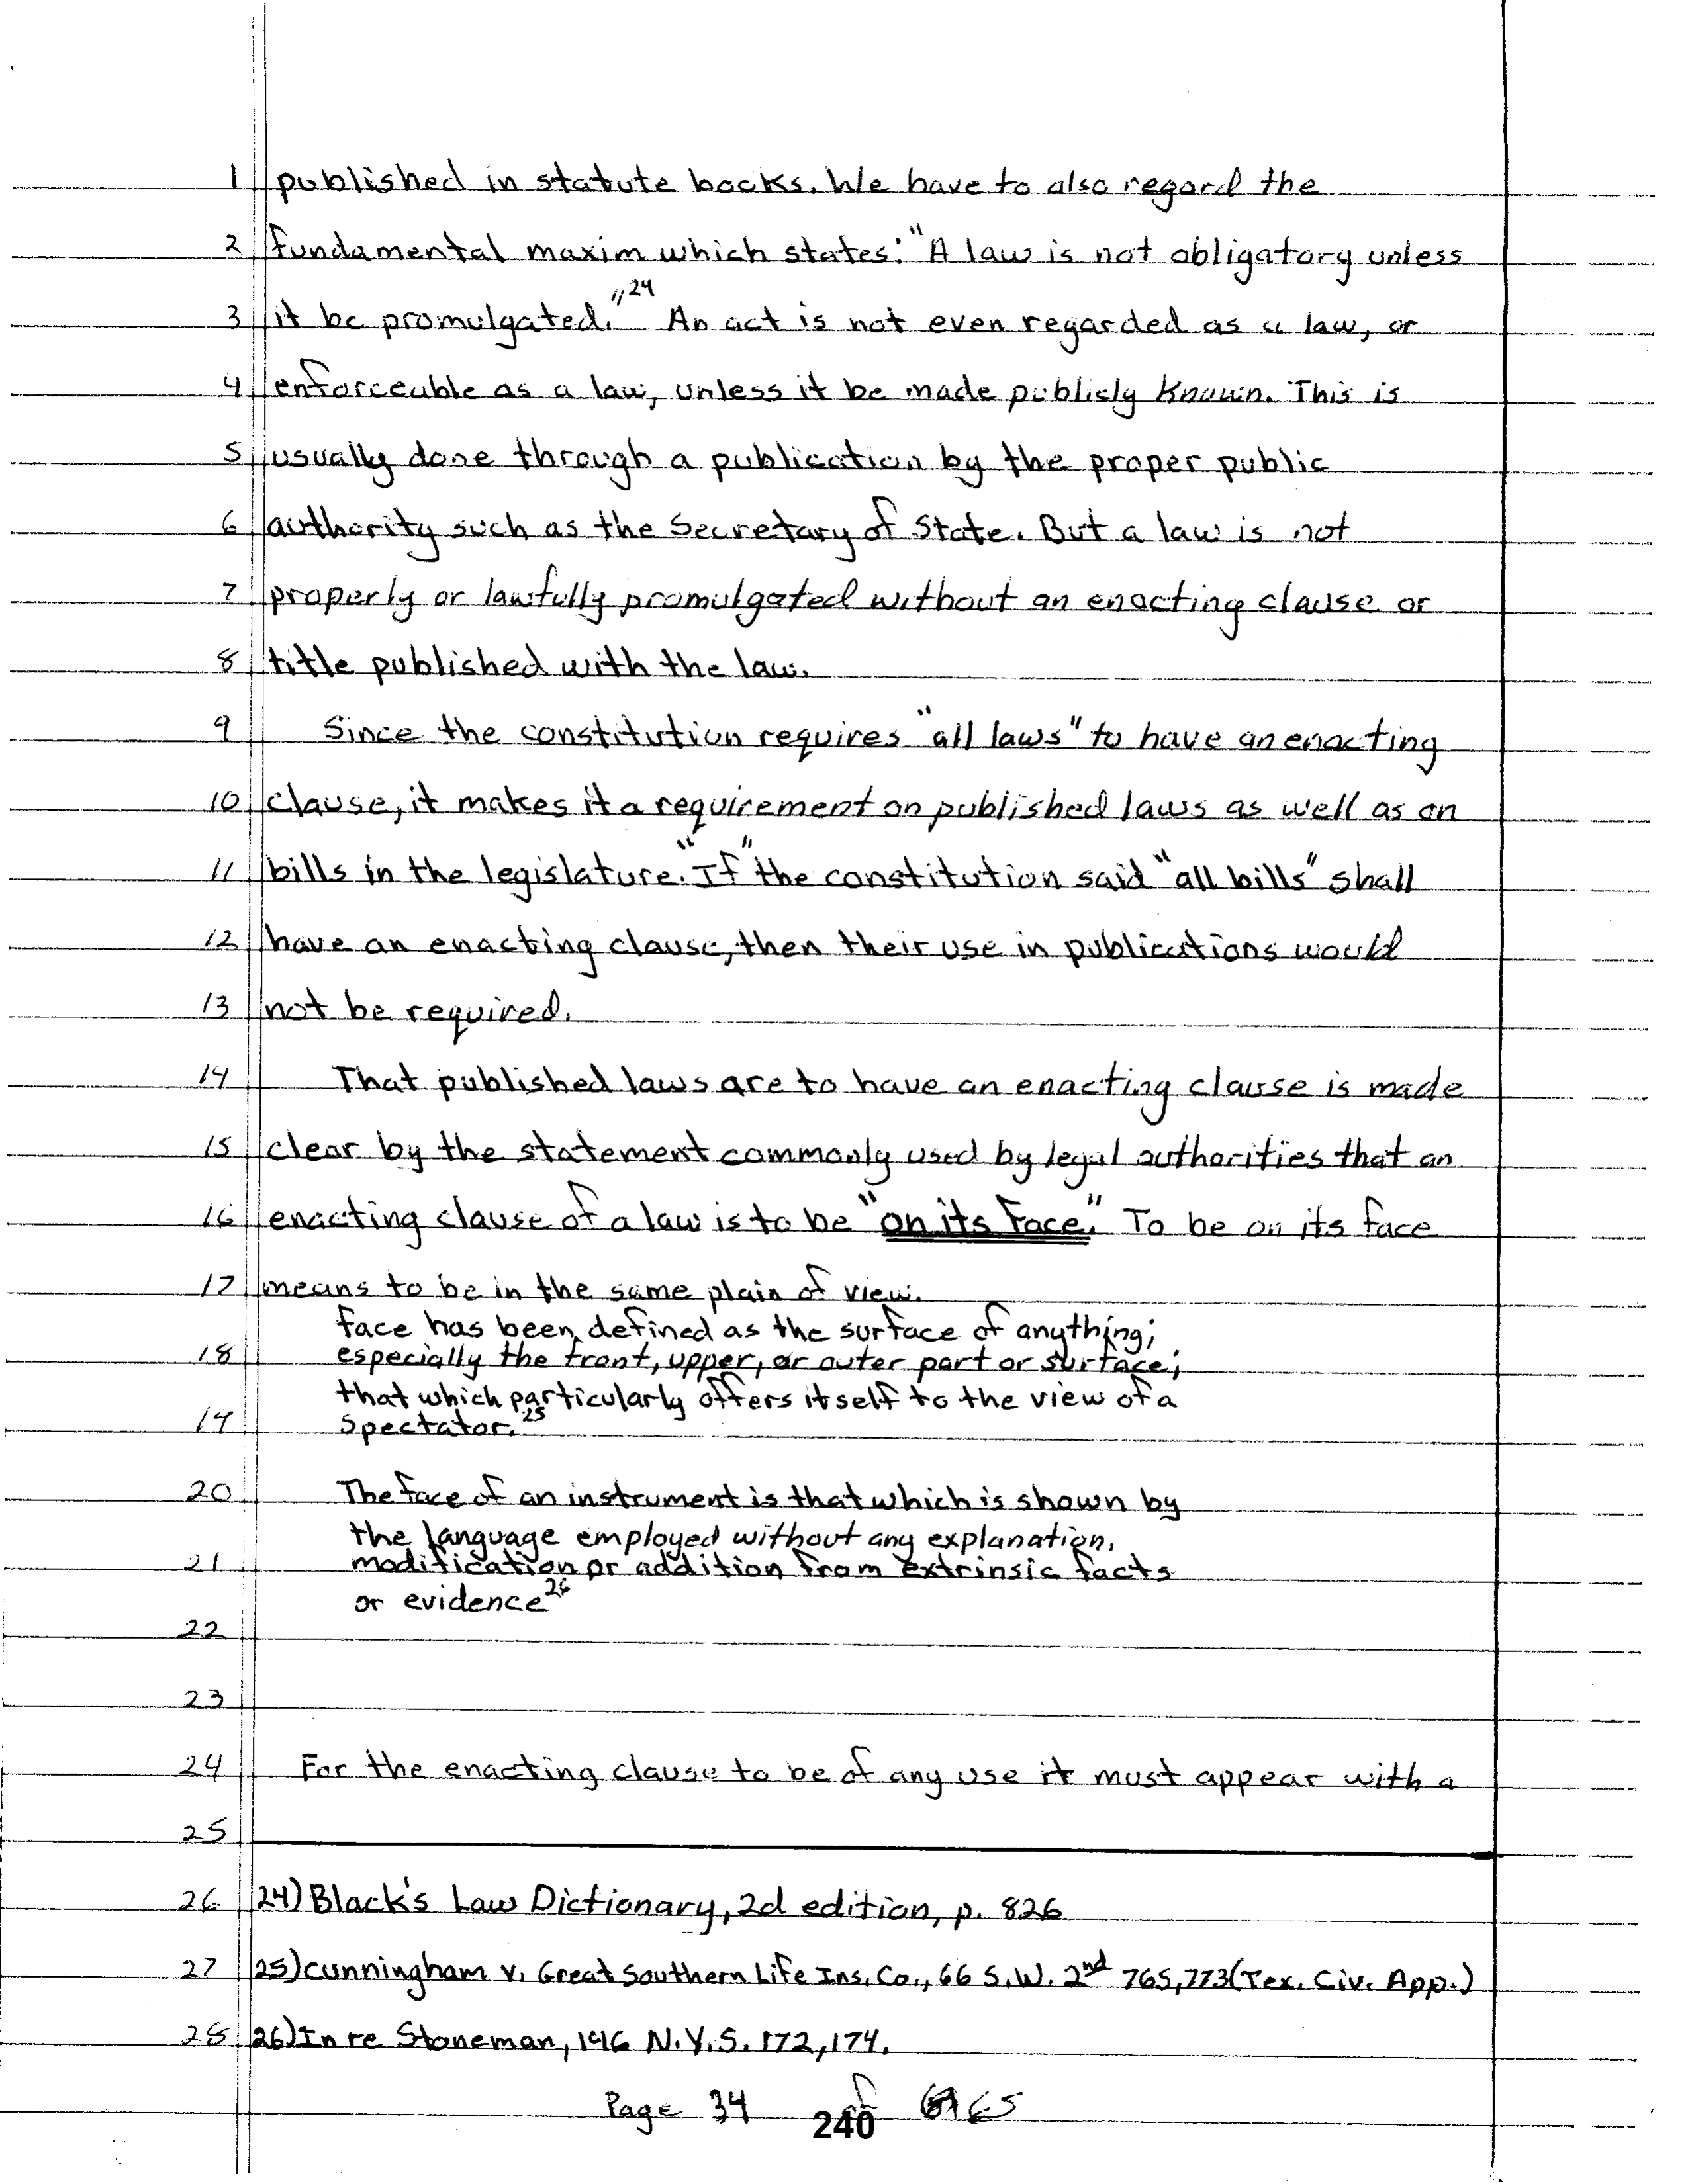 1 published in statute books. We have to also regard the
2 fundamental maxim which states: "A law is not obligatory unless
3 it be promulgated."24 An act is not even regarded as a law, or
4 enforceable as a law, unless it be made publicly known. This is
5 usually done through a publication by the proper public
6 authority such as the Secretary of State. But a law is not
7 properly or lawfully promulgated without an enacting clause or
8 title published with the law.
9 Since the constitution requires "all laws" to have an enacting
10 clause, it makes it a requirement on published laws as well as on
11 bills in the legislature. "If" the constitution said "all bills" shall
12 have an enacting clause, then their use in publications would
13 not be required.
14 That published laws are to have an enacting clause is made
15 clear by the statement commonly used by legal authorities that an
16 enacting clause of a law is to be "on its face." To be on its face
17 means to be in the same plain of view.
face has been defined as the surface of anything;
18 especially the front, upper, or outer part or surface;
that which particularly offers itself to the view of a
19 spectator.25
20 The face of an instrument is that which is shown by
the language employed without any explanation,
21 modification or addition from extrinsic facts
or evidence26
22
23
24 For the enacting clause to be of any use it must appear with a
25
26 24) Black's Law Dictionary, 2d edition, p. 826
27 25) Cunningham v. Great Southern Life Ins. Co., 66 S.W. 2nd 765, 773 (Tex. Civ. App.)
28 26) In re Stoneman, 146 N.Y.S. 172, 174.
Page 34 of 65
240